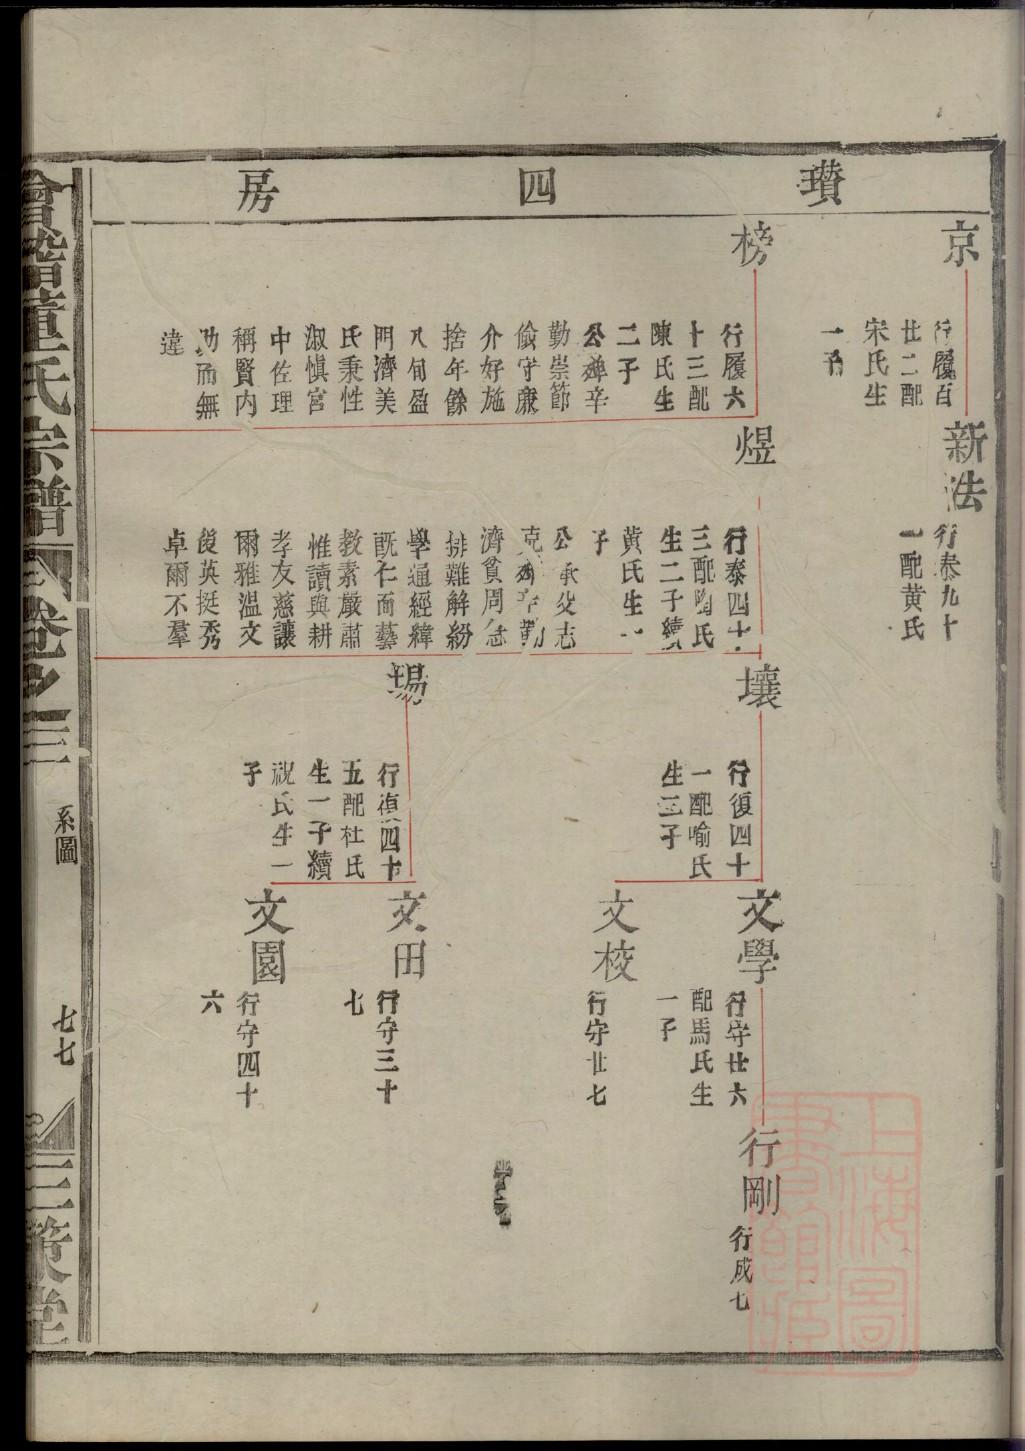 瓚四房
京
行履百
廿二配
宋氏生
一子
新法
行泰九十
一配黄氏
榜
行履六
十三配
陳氏生
二子
公舜辛
勤崇節
儉守廉
介好施
捨年餘
八旬盈
門濟美
氏秉性
淑慎宮
中佐理
稱賢內
助而無
違
煜
行泰四十
三配陶氏
生二子續
黄氏生一
子
公承父志
克勤
濟貧周急
排難解紛
學通經緯
既仁而藝
教素嚴肅
惟讀與耕
孝友慈讓
爾雅溫文
後英挺秀
卓爾不羣
壤
行復四十
一配喻氏
生二子
場
行復四十
五配杜氏
生一子續
祝氏生一
子
文學
行守廿六
配馬氏生
一子
文校
行守廿七
文田
行守三十
七
文園
行守四十
六
行剛
行成七
會稽董氏宗譜
卷之三
系圖
七七
三策堂
上海圖
書館藏